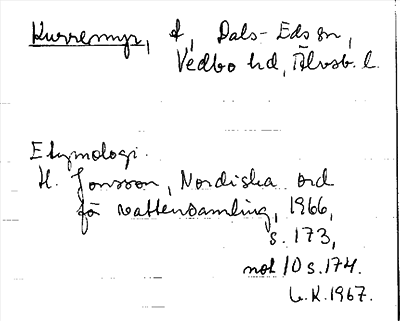 Kurremyr, f, Dals-Eds sn,
Vedbo hd, Älvsb. l.
Etymologi.
H. Jonsson, Nordiska ord
för vattensamling, 1966,
s. 173,
not 10 s. 174.
L.K. 1967.